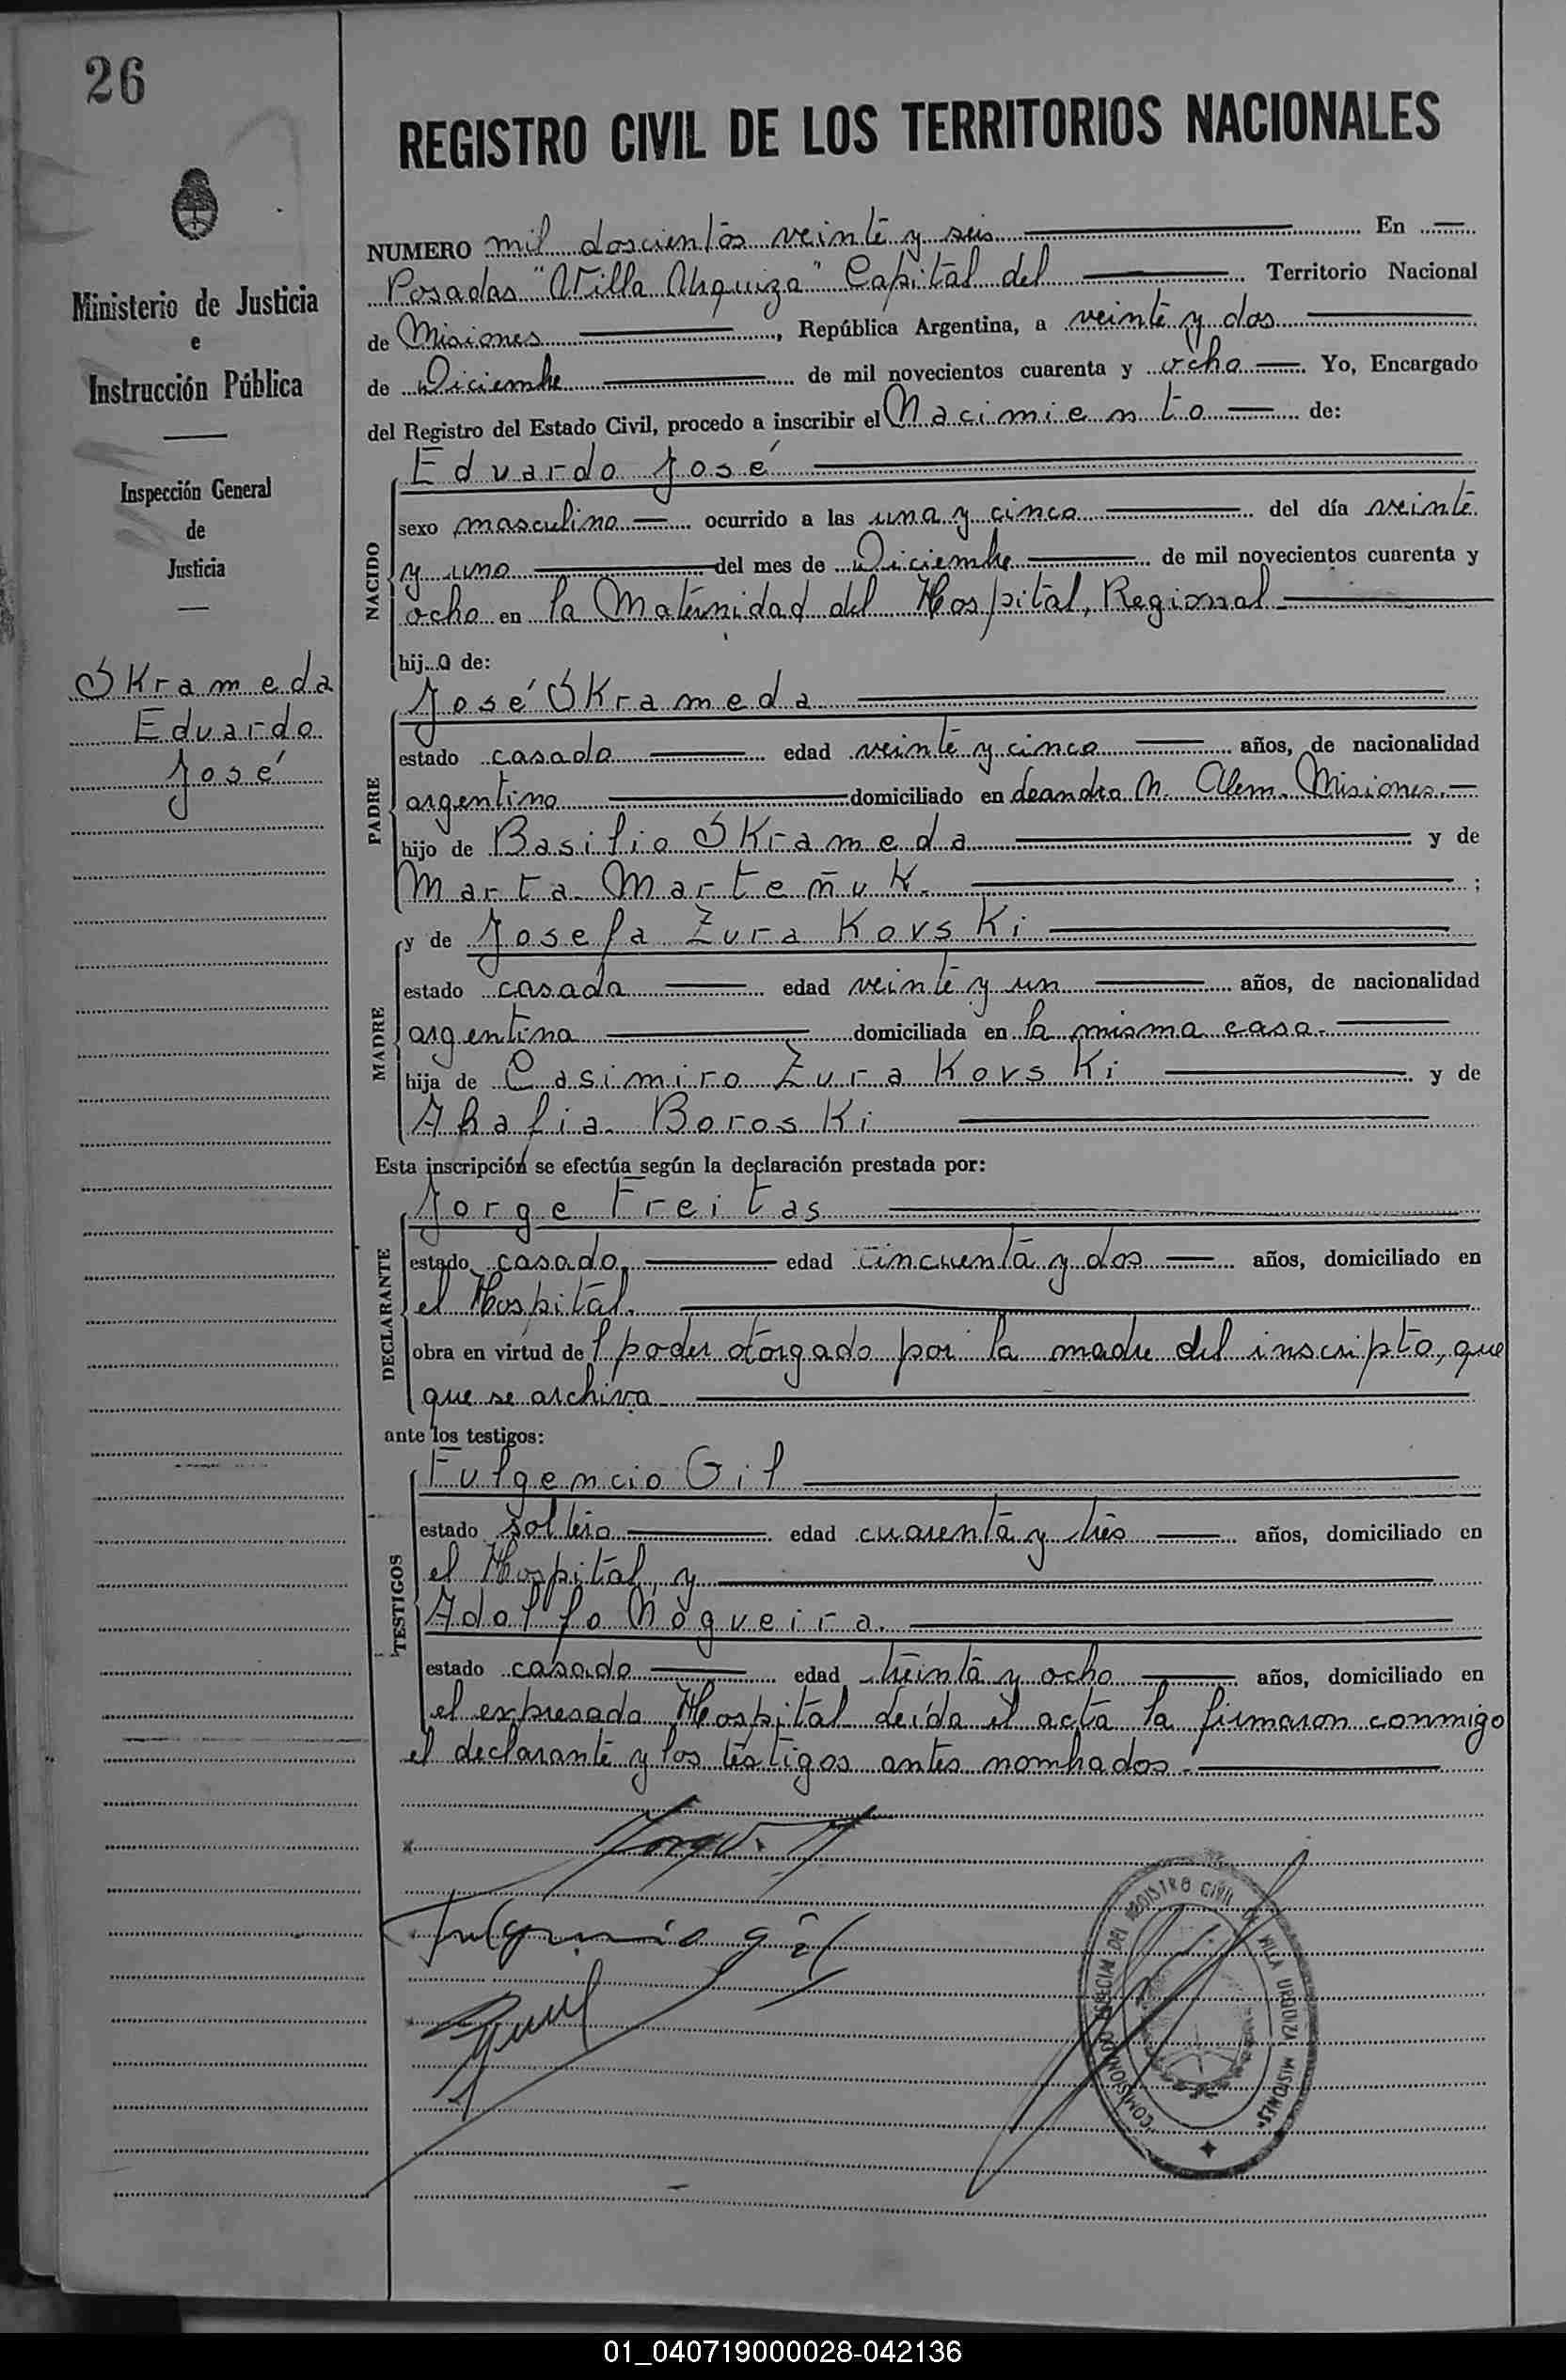 26
REGISTRO CIVIL DE LOS TERRITORIOS NACIONALES
Ministerio de Justicia
e
Instrucción Pública
Inspección General
de
Justicia
Skrameda
Eduardo
José
NUMERO mil doscientos veinte y seis En
Posadas "Villa Urquiza" Capital del Territorio Nacional
de Misiones, República Argentina, a veinte y dos
de Diciembre de mil novecientos cuarenta y ocho Yo, Encargado
del Registro del Estado Civil, procedo a inscribir el Nacimiento de:
Eduardo José
NACIDO
sexo masculino ocurrido a las una y cinco del día veinte
y uno del mes de Diciembre de mil novecientos cuarenta y
ocho en la Maternidad del Hospital, Regional
hijo de:
José Skrameda
PADRE
estado casado edad veinte y cinco años, de nacionalidad
argentino domiciliado en Leandro N. Alem. Misiones.
hijo de Basilio Skrameda y de
Marta Marteñuk. ;
y de Josefa Zurakovski
MADRE
estado casada edad veinte y un años, de nacionalidad
argentina domiciliada en la misma casa.
hija de Casimiro Zurakovski y de
Ahafia Boroski
Esta inscripción se efectúa según la declaración prestada por:
Jorge Freitas
DECLARANTE
estado casado, edad cincuenta y dos años, domiciliado en
el Hospital.
obra en virtud del poder otorgado por la madre del inscripto, que
que se archiva
ante los testigos:
Fulgencio Gil
TESTIGOS
estado soltero edad cuarenta y tres años, domiciliado en
el Hospital, y
Adolfo Nogueira.
estado casado edad treinta y ocho años, domiciliado en
el expresado Hospital Leída el acta la firmaron conmigo
el declarante y los testigos antes nombrados.
Fulgencio Gil
COMISIONADO ESPECIAL DEL REGISTRO CIVIL DE VILLA URQUIZA MISIONES
01_040719000028-042136